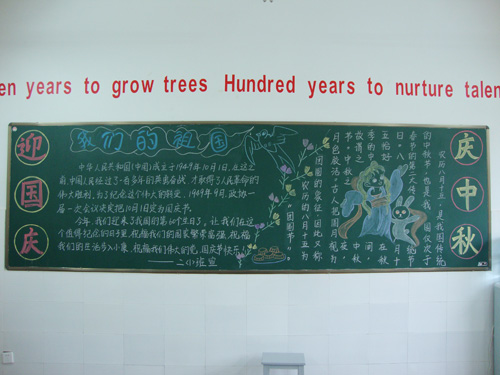 en years to grow trees Hundred years to nurture talen
迎国庆
我们的祖国
中华人民共和国(中国)成立于1949年10月1日,在这之
前,中国人民经过了一百多年的英勇奋战,才取得了人民革命的
伟大胜利,为了纪念这个伟大的转变,1949年9月,政协一
届一次会议决定把10月1日定为国庆节。
今年,我们迎来了我国的第64个生日了,让我们在这
个值得纪念的日子里,祝福我们的国家繁荣富强,祝福
我们的生活步入小康,祝福我们伟大的党,国庆节快乐!
——二小班宣
农历八月十五,是我国传统
的中秋节,也是我国仅次于
春节的第二大传统节
日。八月十
五恰好在秋
季的中间,
故谓之中秋
节。中秋之夜,
月色皎洁,古人把圆月视为
团圆的象征,因此又称
农历的八月十五为
“团圆节”。
庆中秋